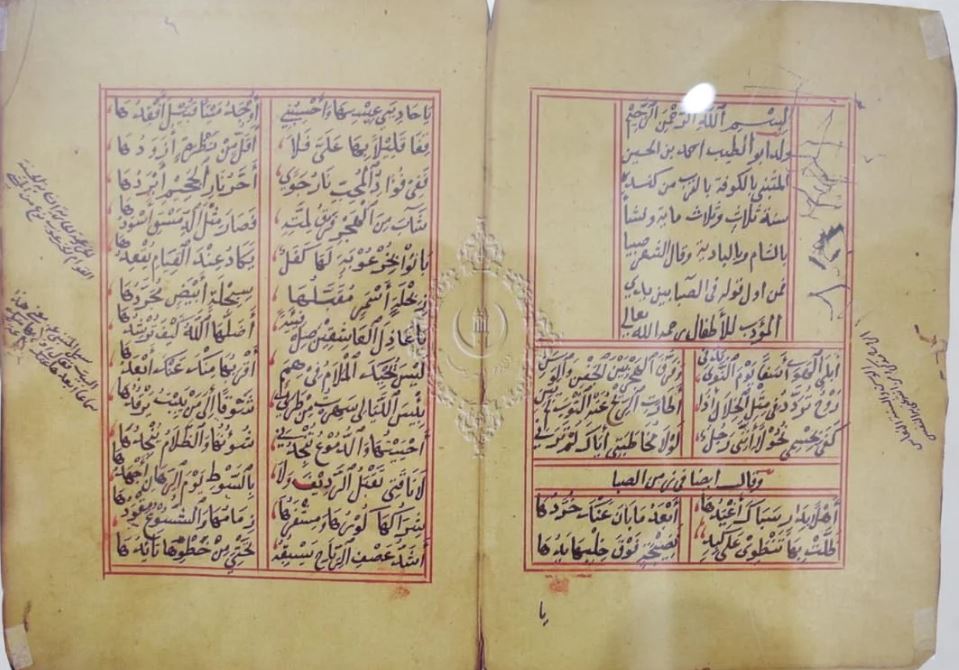 بسم الله الرحمن الرحيم
ولد ابو الطيب احمد بن الحسين
المتنبي بالكوفة بالقرب من كنده
سنة ثلاث وثلاث ماية ونشأ
بالشام وبالبادية وقال الشعر صبيا
فمن اول قوله في الصبا بين يدي
المؤدب للأطفال رحمه الله تعالى
أبلى الهوى أسفا يوم النوى بدني وفرق الهجر بين الجفن والوسن
روح تردد في مثل الخلال إذا أطارت الريح عنه الثوب لم يبن
كفى بجسمي نحولا أنني رجل لولا مخاطبتي اياك لم ترني
وقال ايضا في زمن الصبا
أهلا بدار سباك أغيدها أبعد ما بان عنك خردها
ظلت بها تنطوي على كبد نضيجة فوق خلبها يدها
يا حاديي عيسها وأحسبني أوجد ميتا قبيل أفقدها
قفا قليلا بها علي فلا أقل من نظرة أزودها
ففي فؤاد المحب نار جوى أحر نار الجحيم أبردها
شاب من الهجر فرق لمته فصار مثل الدمقس أسودها
بانوا بخرعوبة لها كفل يكاد عند القيام يقعدها
ربحلة أسمر مقبلها سبحلة أبيض مجردها
يا عاذل العاشقين أضلها الله كيف ترشدها
ليس يحيك الملام في همم أقربها منك عنك أبعدها
بئس الليالي سهرت من طربي شوقا إلى من يبيت يرقدها
أحييتها والدموع تنجدني شؤونها والظلام ينجدها
لا ناقتي تقبل الرديف ولا بالسوط يوم الرهان أجهدها
شراكها كورها ومشفرها زمامها والشسوع مقودها
أشد عصف الرياح يسبقه تحتي من خطوها تأيدها
يا